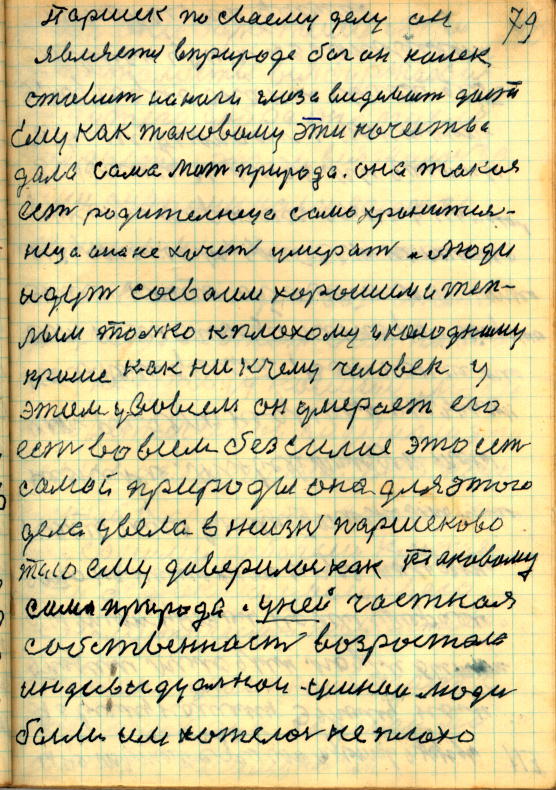 паршек по сваему делу он 79
является вприроде бог он калек
ставит наноги глаза видемаст даёт
ему как таковому эти качества
дала сама мат природа. она такоя
ест родителница само хранител-
ница она не хочет умират. люди
идут сосваим хорошим и теп-
лым толко кплохому и холодному
кроме как ни кчему человек у
этим увовсем он умерает его
ест вовсем безсилие это ест
самой природы она для этого
дела увела в жизн паршеково
таго ему доверилас как таковому
сама природа. уней частная
собственаст возростала
индивидуалной - люди
были им хотелос не плохо